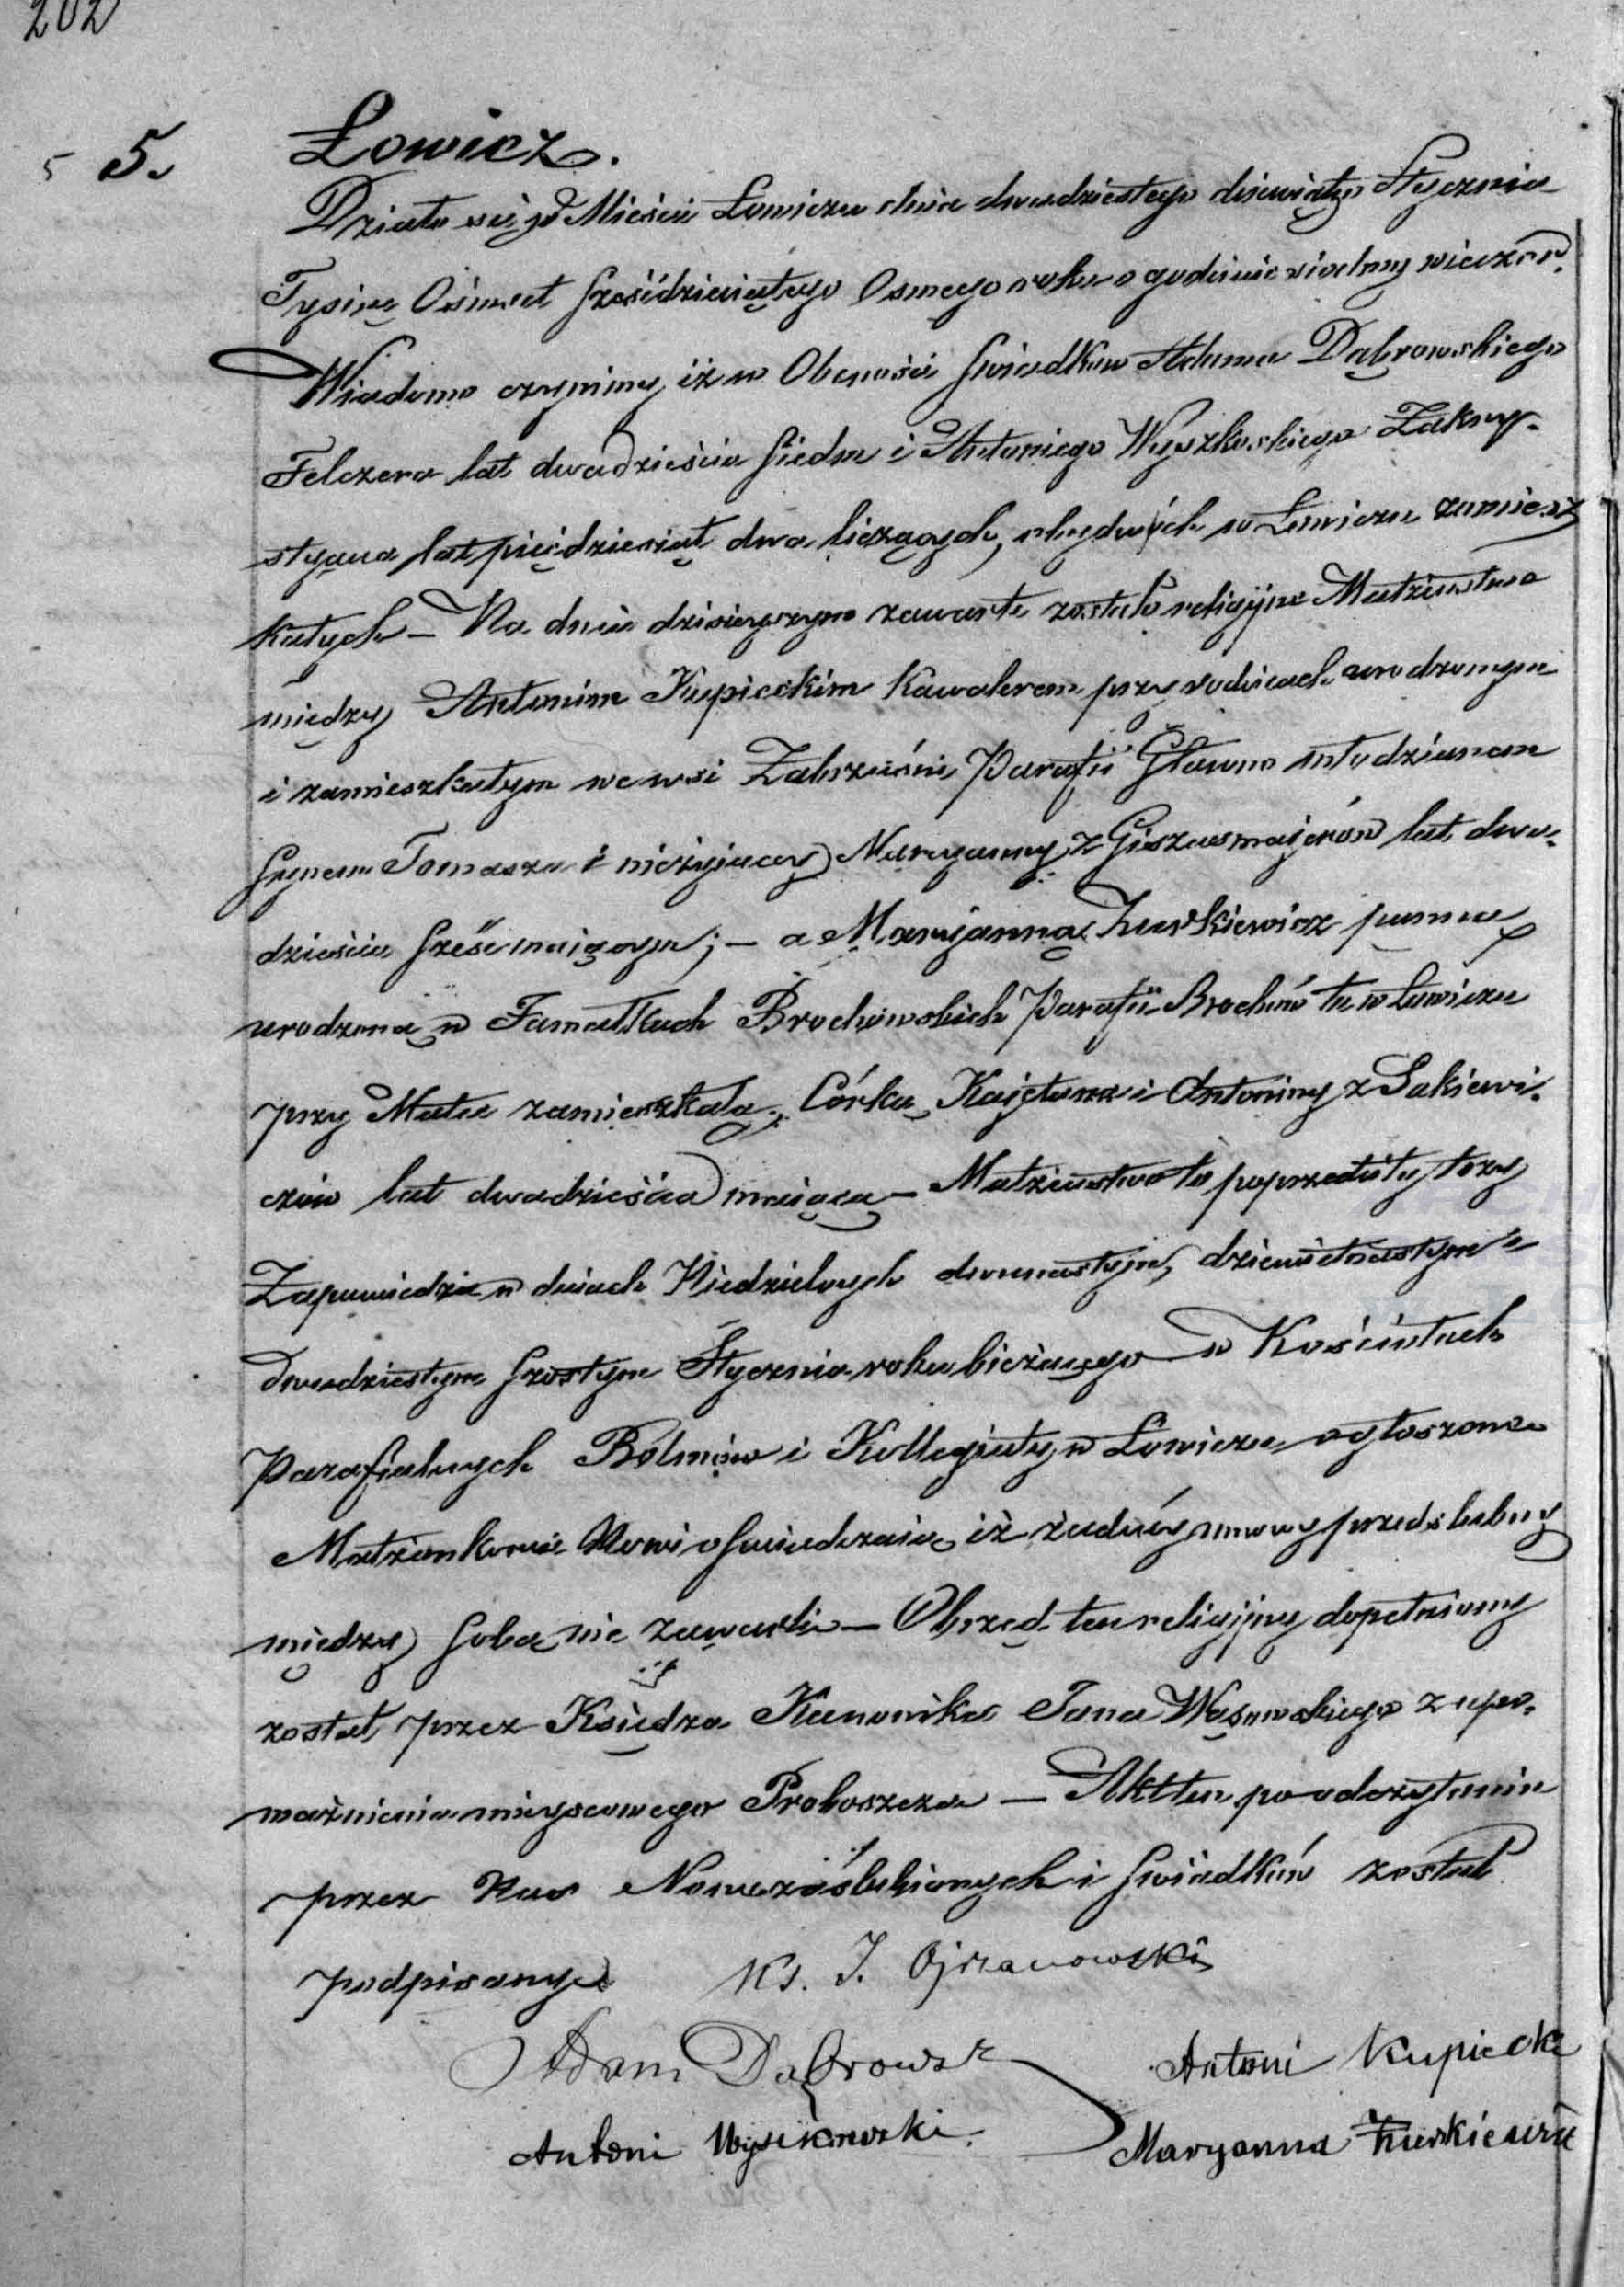 202
5 5. Łowicz.
Działo się w Mieście Łowiczu dnia dwudziestego dziewiątego Stycznia
Tysiąc Ośmset sześćdziesiątego Osmego roku o godzinie siódmy wieczór.
Wiadomo czynimy iż w Obecności świadków Adama Dąbrowskiego
Felczera lat dwadzieścia siedm i Antoniego Wyszkoskiego Zakry-
styana lat pięćdziesiąt dwa liczących, obydwóch w Łowiczu zamiesz
kałych – Na dniu dzisieyszym zawarte zostało religijne Małżeństwo
między Antonim Kupieckim kawalerem przy rodzicach urodzonym
i zamieszkałym we wsi Parafii Główno młodzianem
synem Tomasza i nieżyiącey Maryanny z lat dwa-
dzieścia sześć maiącym; – a Maryjanną Żurkiewicz panną
urodzoną w Famułkach Brochowskich Parafii Brochów tu w Łowiczu
przy Matce zamieszkałą, Córką Kajetana i Antoniny z Sakiewi-
czów lat dwadzieścia maiącą – Małżeństwo to poprzedziły trzy
Zapowiedzie w dniach Niedzielnych dwunastym, dziewiętnastym i
dwudziestym szóstym Stycznia roku bieżącego w Kościołach
Parafialnych Bolimów i Kollegiaty w Łowiczu ogłoszone
Małżonkowie Nowi oświadczaią iż żadnéy umowy przedślubny
między sobą nie zawarli – Obrzęd ten religijny dopełniony
został przez Księdza Kanonika Jana Wąsowskiego z upo-
ważnienia mieyscowego Proboszcza – Akt ten po odczytaniu
przez Nas Nowozaślubionych i świadków został
podpisany Ks. J. Ojrzanowski
Adam Dąbrowsk Antoni Kupiecki
Antoni Wyszkowski. Maryanna Żurkiewicz